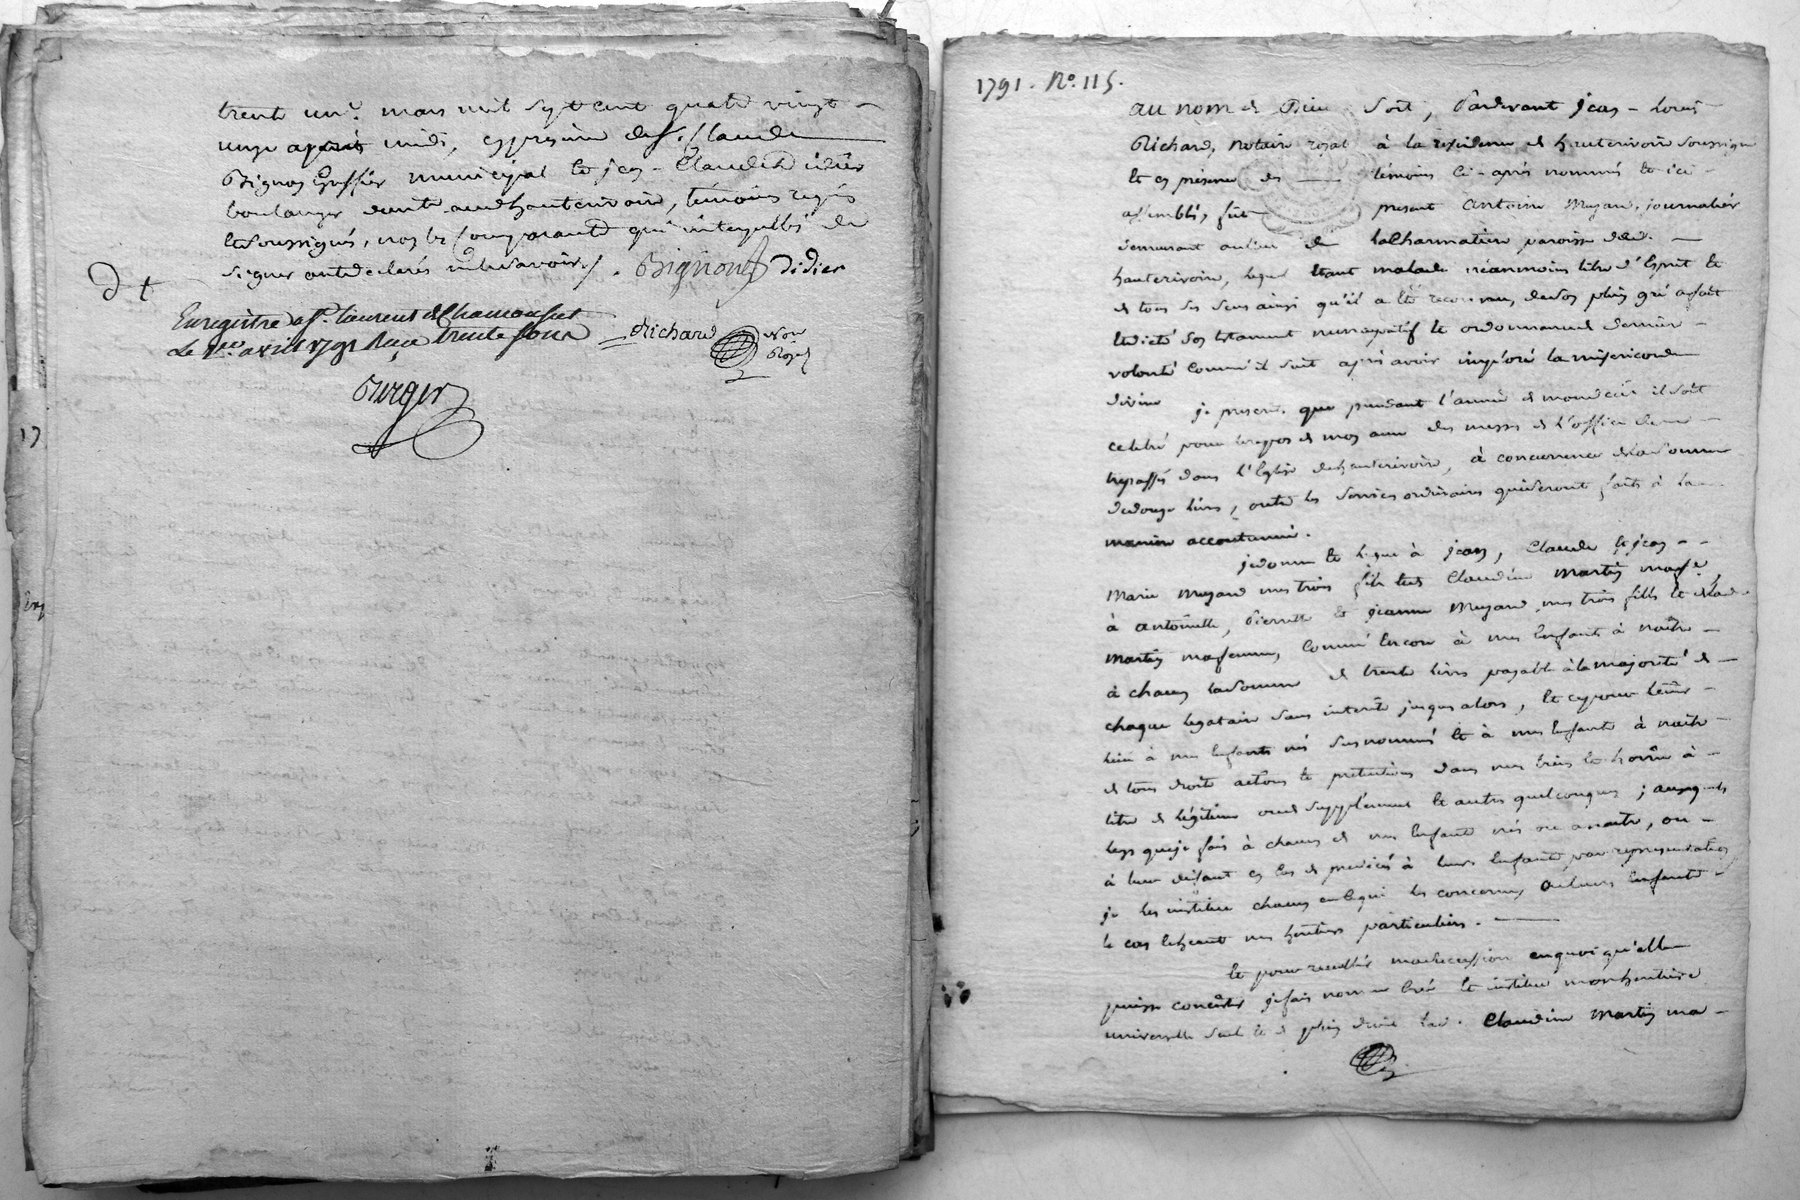 trente un.e mars mil sept cent quatre vingt
unze après midi, en presence de s.r Claude
Bignon Greffier municipal et jean Claude Didier
boulanger audit hauterivoire, témoins requis
et soussignés, non les comparants qui interpellés de
signer ont déclarés ne le savoir. Bignon Didier
Enregistré a St. Laurent de Chamousset
Le 1er avril 1791 Reçu trente sous Richard Nore Royal
Berger
17
1791. No. 115.
au nom de Dieu soit, Pardevant jean Louis
Richard, notaire royal à la résidence de hauterivoire soussigné
et en présence des témoins ci-après nommés et ici
assemblés, fut present antoine Mezard, journalier
demeurant au lieu de paroisse dud.
hauterivoire, lequel étant malade néanmoins libre d'Esprit et
de tous ses sens ainsi qu'il a été reconnu, de son plein gré a fait
et dicté son testament nuncupatif et ordonnance de derniere
volonté comm'il suit après avoir imploré la misericorde
divine je que pendant l'année de mon décès il soit
celebré pour le repos de mon ame des messes de l'office des
trepassés dans l'Eglise de hauterivoire, à concurrence de la somme
de douze livres, outre les services ordinaires qui seront faits à la
maniere accoutumée.
je donne et legue à jean, Claude et jean
Marie Mezard mes trois fils et de Claudine Martin ma fe.,
à antoinette, Pierrette et jeanne Mezard, mes trois filles et de lad.
Martin ma femme, comme encore à mes Enfants à naitre
à chacun la somme de trente livres payable à la majorité de
chaque legataire sans interêt jusqu'alors, et ce pour tenir
lieu à mes Enfants nés susnommés et à mes Enfants à naitre
de tous droits actions et pretentions dans mes biens et hoirie à
titre de légitime ou de supplément et autres quelconques; auxquels
legs que je fais à chacun de mes Enfants nés ou a naitre, ou
à leur defaut en cas de predécés à leurs Enfants par representation
je les institue chacun en ce qui les concerne, ou leurs Enfants
le cas échéant mes héritiers particuliers.
et pour recueillir ma succession en quoi qu'elle
puisse consister je fais nomme crée et institue mon héritiere
universelle seule et de plein droit lad. Claudine Martin ma